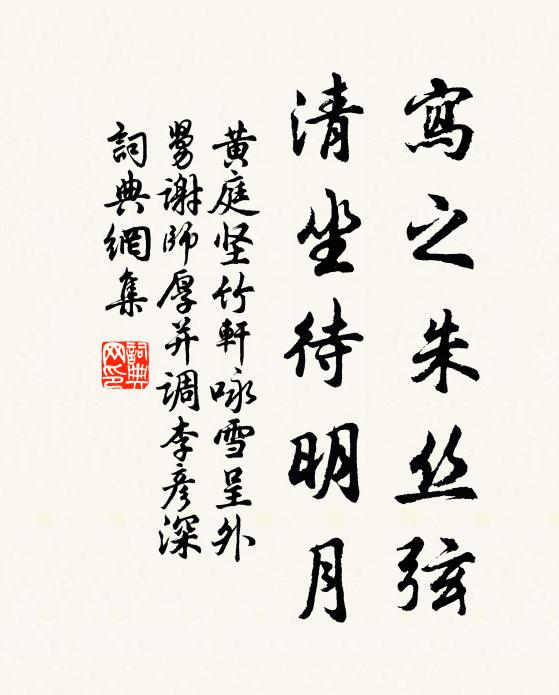 寫之朱丝弦
清坐待明月
黄庭坚竹軒咏雪呈外
舅谢師厚并调李彦深
詞典網集
詞典
网印